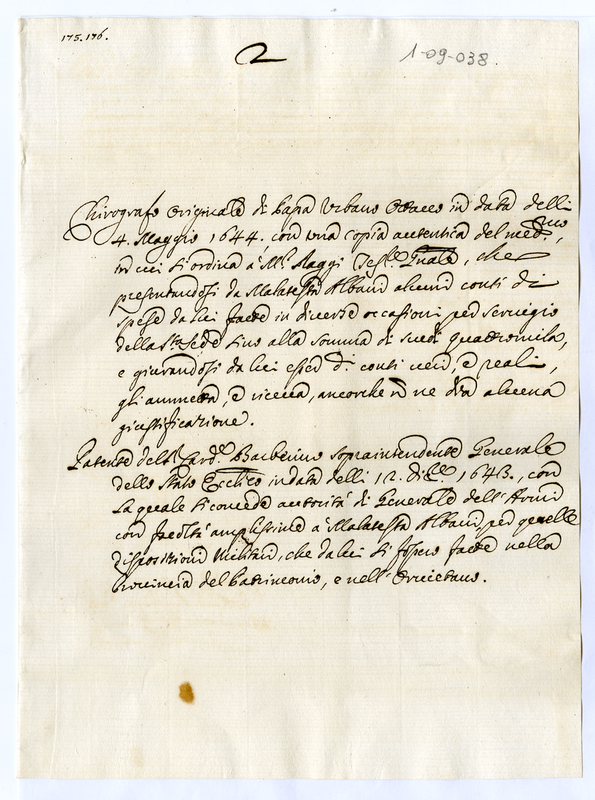 175.176.
2
1-09-038.
Chirografo Originale di Papa Urbano Ottavo in data delli
4. Maggio 1644. con una copia autentica del med.mo,
in cui si ordina à M.r Raggi Tes.re Gnale, che
presentandosi da Malatesta Albani alcuni conti di
spese da lui fatte in diverse occasioni per servigio
della S.ta Sede sino alla somma di scudi quattromila,
e giurandosi da lui esser di conti veri, e reali,
gli ammetta, e riceva, ancorche nō ne dia alcuna
giustificazione.
Patente del S.r Card.l Barberino sopraintendente Generale
dello Stato Eccl.ico in data delli 12. Di.bre 1643., con
la quale si concede autorità di Generale dell'Armi
con facoltà amplissime à Malatesta Albani per quelle
disposizioni Militari, che da lui si fossero fatte nella
Provincia del Patrimonio, e nell'Orvietano.